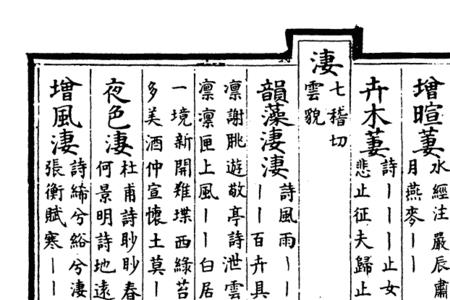 增暄萋水經注嚴辰肅
月燕麥丨丨
卉木萋詩丨丨丨止女
悲止征夫歸止
淒七稽切
雲貌
韻藻淒淒詩風雨丨丨
丨丨百卉具
凛謝朓遊敬亭詩泄雲
凛凛匣上風丨丨白居
一境新開雉堞西綠苔
多美酒仲宣懷土莫丨
夜色淒杜甫詩眇眇春
何景明詩地遠
增風淒詩絺兮綌兮淒
張衡賦寒丨丨